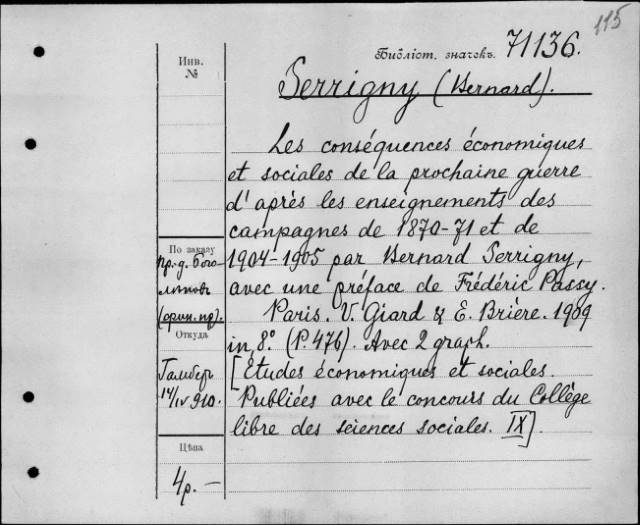 115
Библіот. значекъ. 71136.
Инв.
№
Serrigny (Bernard).
Les conséquences économiques
et sociales de la prochaine guerre
d'après les enseignements des
campagnes de 1870-71 et de
1904-1905 par Bernard Serrigny,
avec une préface de Frédéric Passy.
Paris. V. Giard & E. Brière. 1909
in 8º. (P. 476). Avec 2 graph.
[Études économiques et sociales.
Publiées avec le concours du Collège
libre des sciences sociales. IX].
По заказу
пр.-д. Бого-
лѣпов
Откуда
14/IV 910.
Цѣна
4р. —